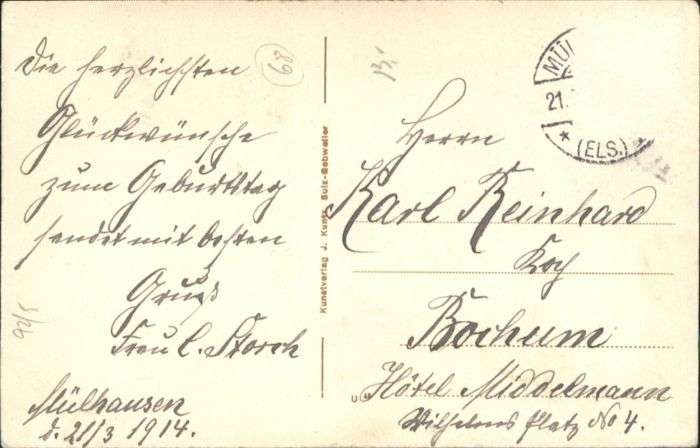 Die herzlichsten
Glückwünsche
zum Geburtstag
sendet mit besten
Gruß
Frau C. Storch
Mülhausen
d. 21/3 1914.
68
Kunstverlag J. Kuntz, Sulz-Gebweiler
MÜL
21.
* (ELS.)
Herrn
Karl Reinhard
Koch
Bochum
Hôtel Middelmann
Wilhelms Platz No 4.